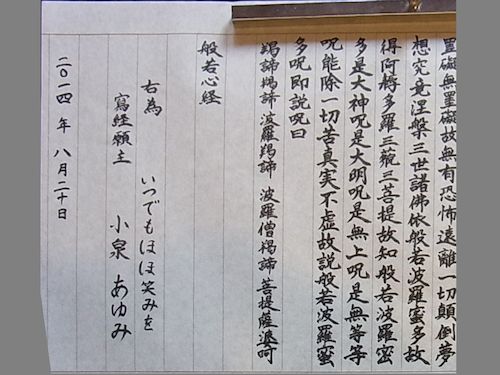 罣礙無罣礙故無有恐怖遠離一切顛倒夢
想究竟涅槃三世諸佛依般若波羅蜜多故
得阿耨多羅三藐三菩提故知般若波羅蜜
多是大神呪是大明呪是無上呪是無等等
呪能除一切苦真実不虚故説般若波羅蜜
多呪即説呪曰
羯諦羯諦 波羅羯諦 波羅僧羯諦 菩提薩婆訶
般若心経
右為 いつでもほほ笑みを
寫経願主 小泉 あゆみ
二〇一四年 八月二十日